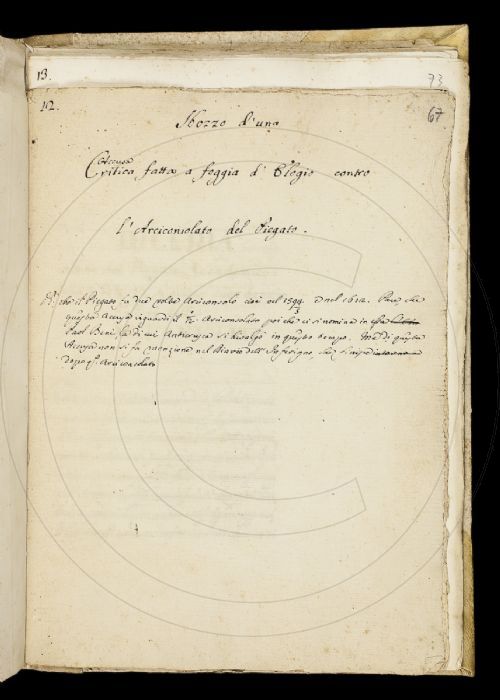 13.
73
12.
67
Sbozzo d'una
Accusa
Critica fatta a foggia d'Elogio contro
l'Arciconsolato del Piegato.
che il Piegato fu due volte Arciconsolo cioè nel 1594 e nel 1612. Pare che
questa Accusa riguardi il Arciconsolato poi che ci si nomina in
Paol Beni, la di cui Anticrusca si divolgò in questo tempo. Ma di questa
Accusa non si fa menzione nel Diario dell' Inferigno
dopo Arciconsolato